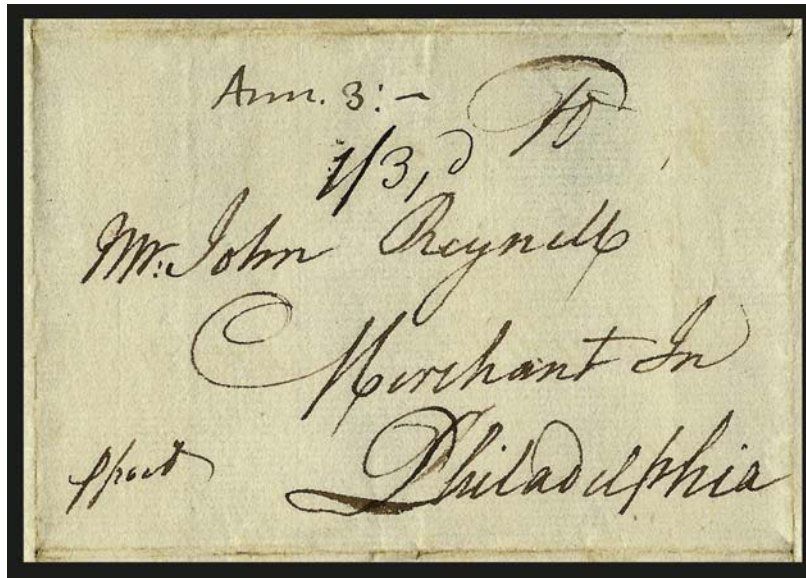 Ann. 3:- To
1/3,d
Mr: John Reynell
Merchant In
Philadelphia
ppost